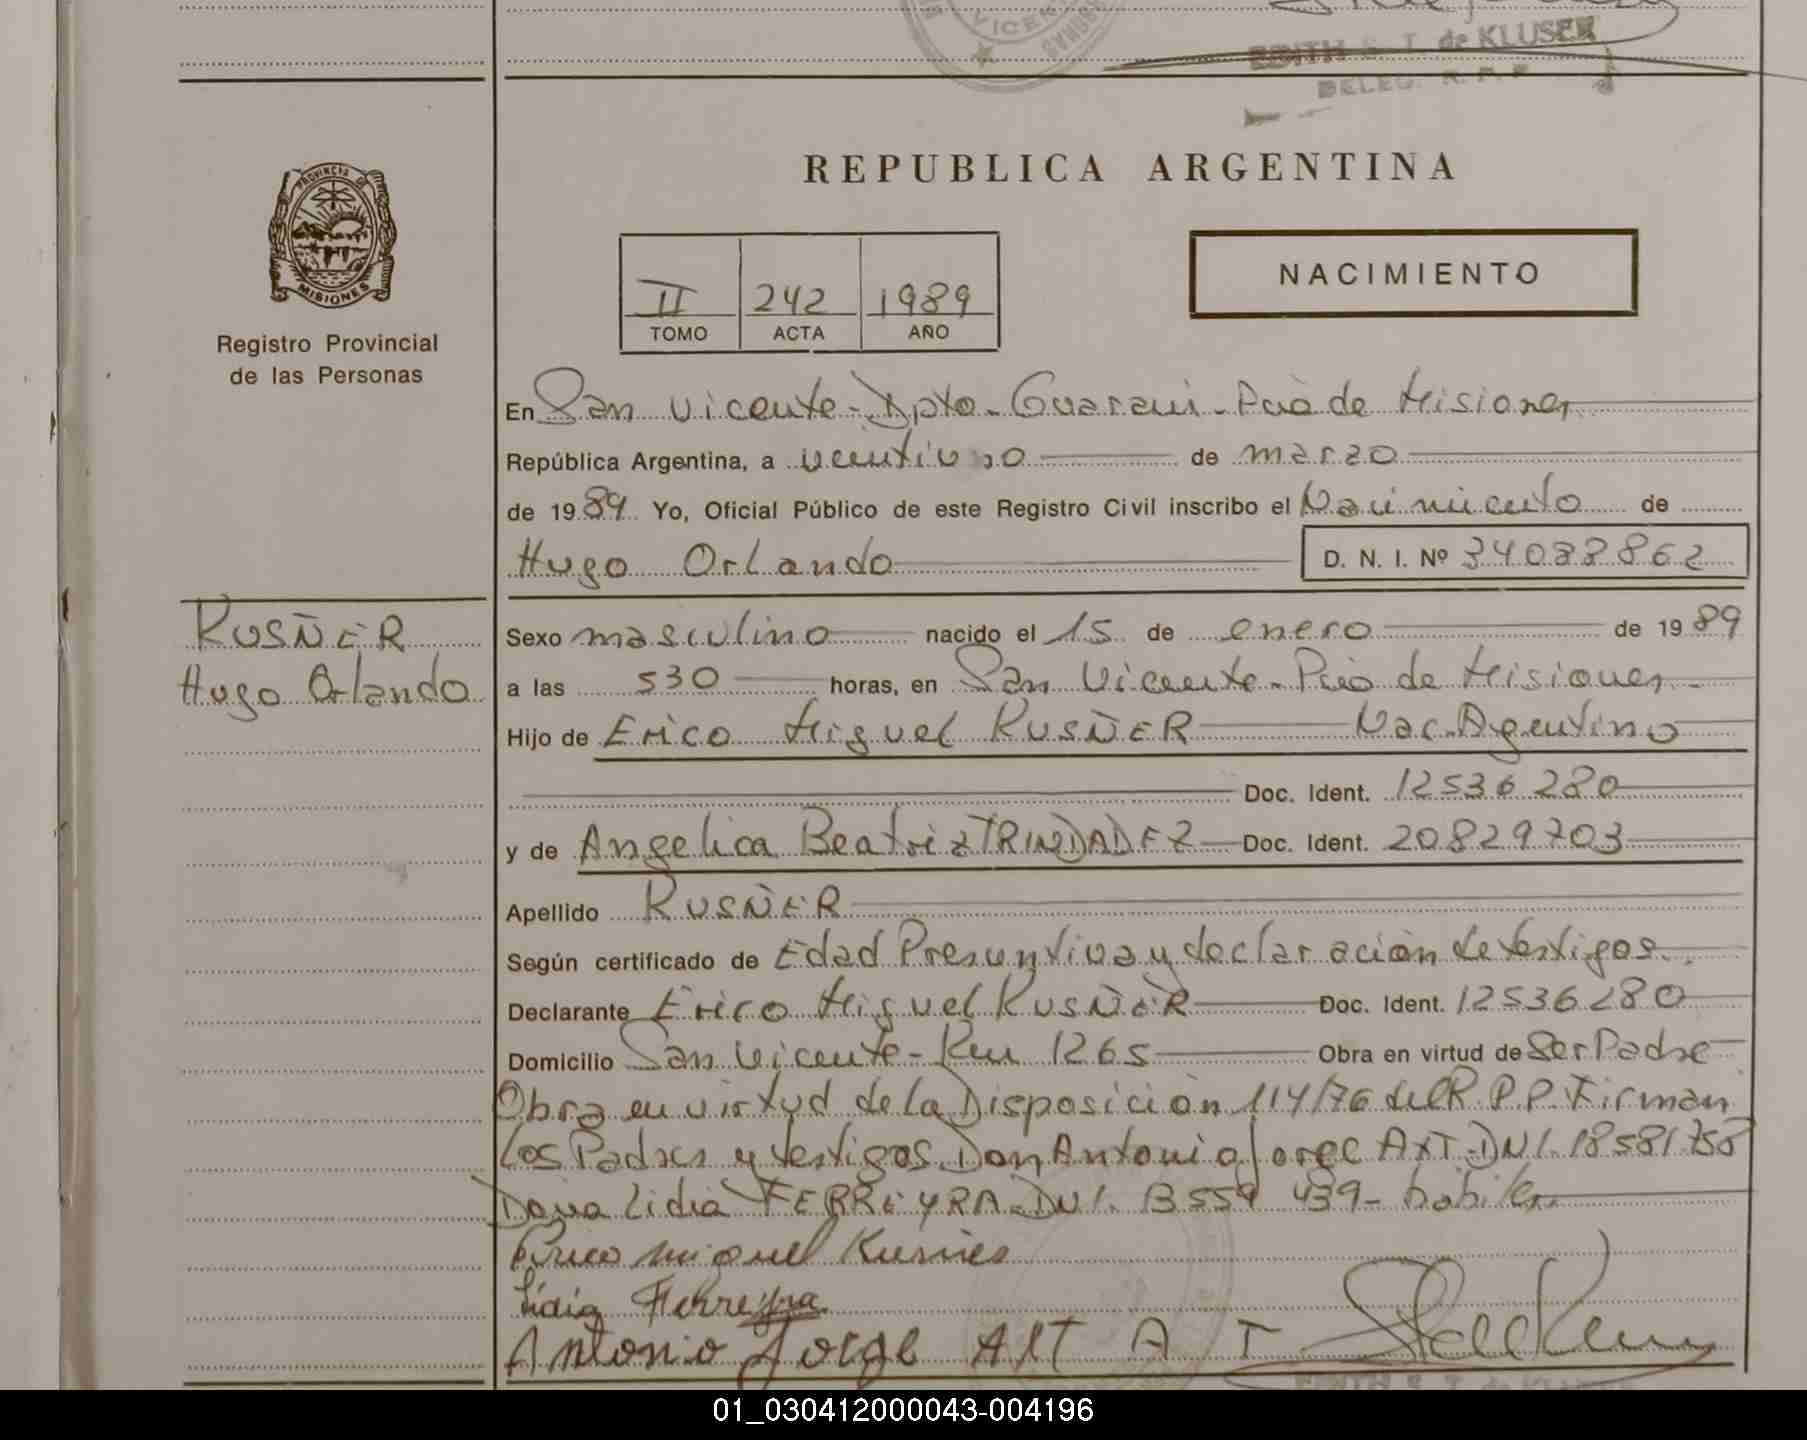 VICENT
EDITH S. T. de KLUSER
DELEG. R. P. P.
PROVINCIA DE
MISIONES
Registro Provincial
de las Personas
REPUBLICA ARGENTINA
II 242 1989
TOMO ACTA AÑO
NACIMIENTO
En San Vicente - Dpto. Guarani - Pcia de Misiones
República Argentina, a veintiuno de marzo
de 1989 Yo, Oficial Público de este Registro Civil inscribo el Nacimiento de
Hugo Orlando D. N. I. Nº 34088862
KUSÑER
Hugo Orlando
Sexo masculino nacido el 15 de enero de 1989
a las 530 horas, en San Vicente - Pcia de Misiones
Hijo de Erico Miguel KUSÑER Nac. Agentino
Doc. Ident. 12536280
y de Angelica Beatriz TRINDADEZ Doc. Ident. 20829703
Apellido KUSÑER
Según certificado de Edad Presuntiva y declaración de testigos
Declarante Erico Miguel KUSÑER Doc. Ident. 12536280
Domicilio San Vicente - Km 1265 Obra en virtud de Ser Padre
Obra en virtud de la Disposición 114/76 del R.P.P. Firman
los Padres y testigos Don Antonio Jorge AXT. DNI. 18581758
Doña Lidia FERREYRA. DNI. 13559 439 - habiles
Erico Miguel Kusner
Lidia Ferreyra
Antonio Jorge AXT A T
EDITH S. T. de KLUSER
01_030412000043-004196